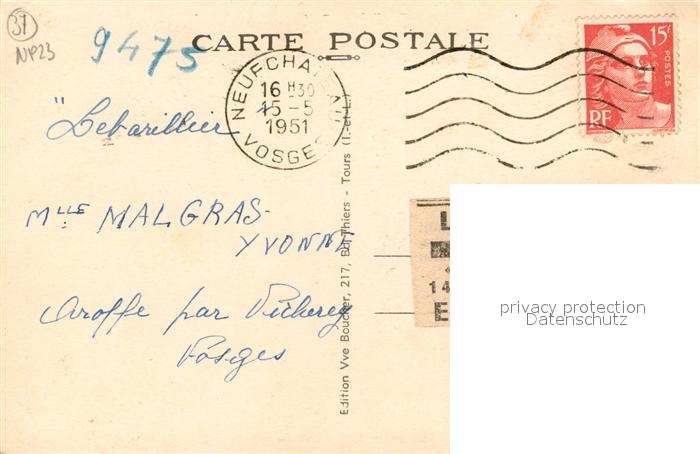 37
NP23
9475
CARTE POSTALE
NEUFCHATEAU
16 H30
15-5
1951
VOSGES
15F
POSTES
RF
"Lebarillier
Mlle MALGRAS-
YVONNE
Aroffe par Vicherey
Vosges
Edition Vve Boucher, 217, Bd Thiers - Tours (I.-et-L.)
L
14
E
privacy protection
Datenschutz